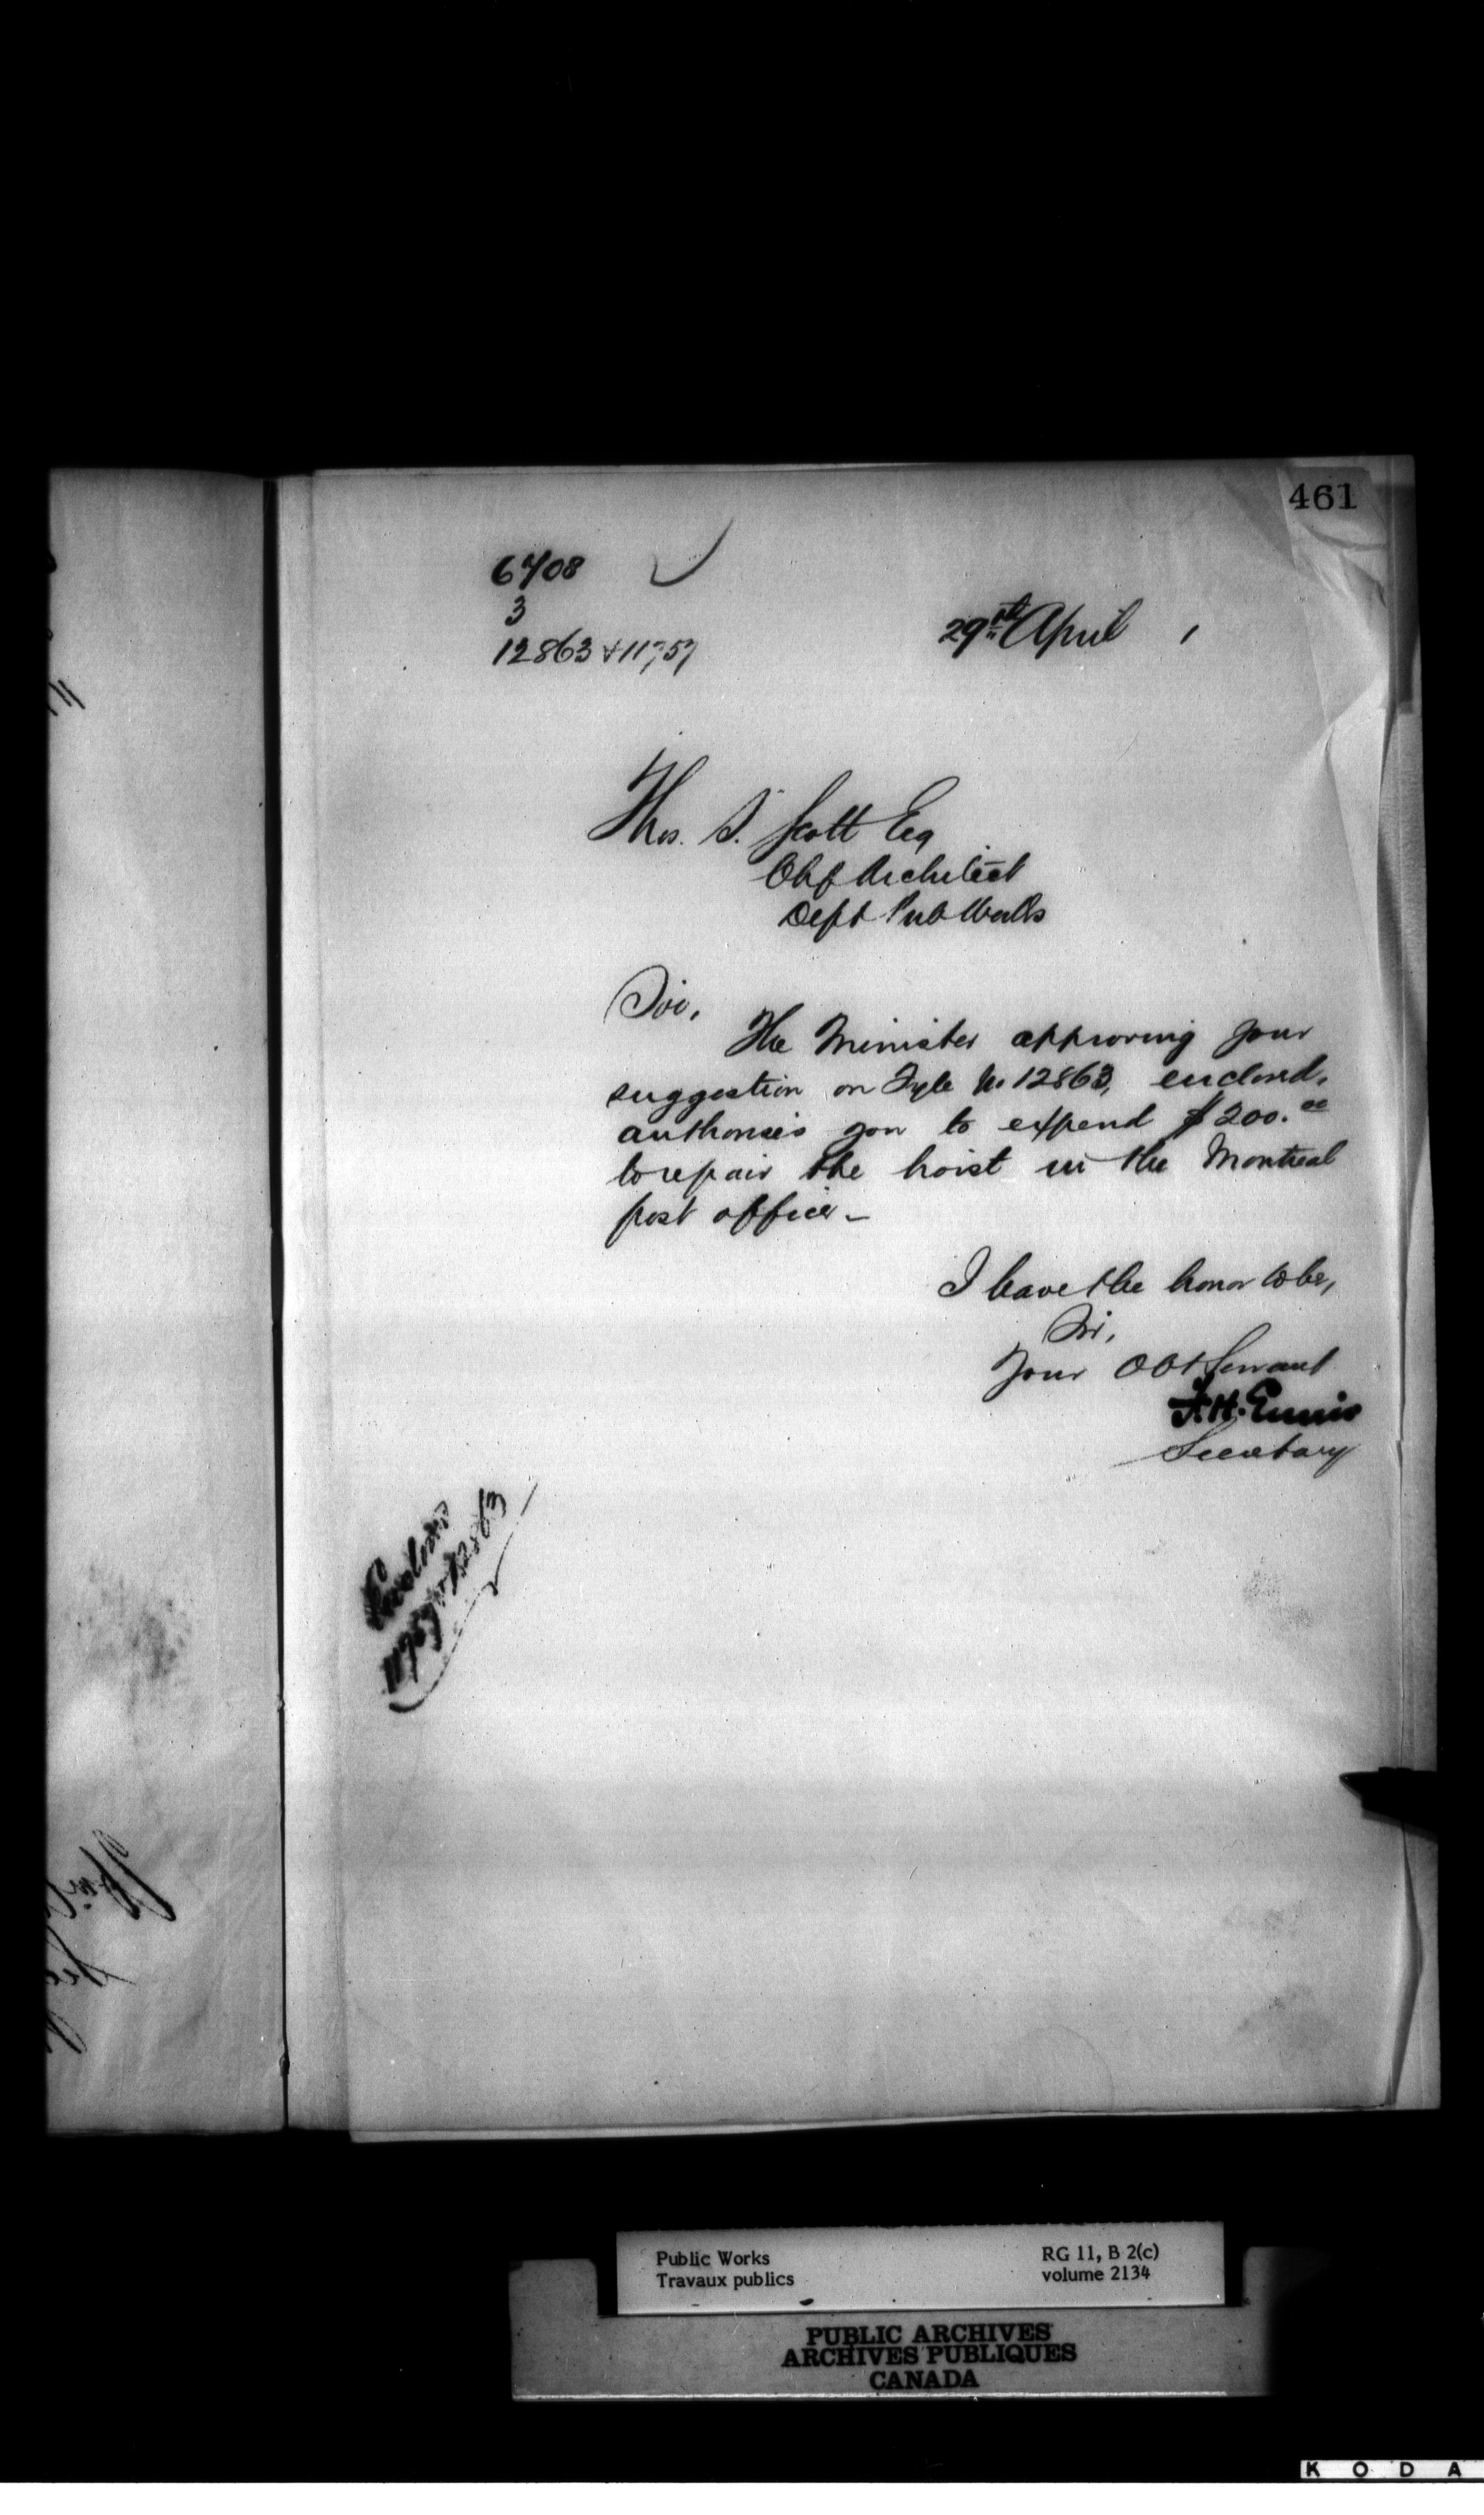 461
6708
3
12863 & 11757
29th April 1
Thos. S. Scott Esq
Chf Architect
Dept Pub Works
Sir,
The Minister approving your
suggestion on Fyle No 12863, enclosed,
authorises you to expend $200.00
to repair the hoist in the Montreal
post office -
I have the honor to be,
Sir,
Your Obt Servant
F. H. Ennis
Secretary
11757 & 12863
Public Works
Travaux publics
RG 11, B 2(c)
volume 2134
PUBLIC ARCHIVES
ARCHIVES PUBLIQUES
CANADA
K O D A